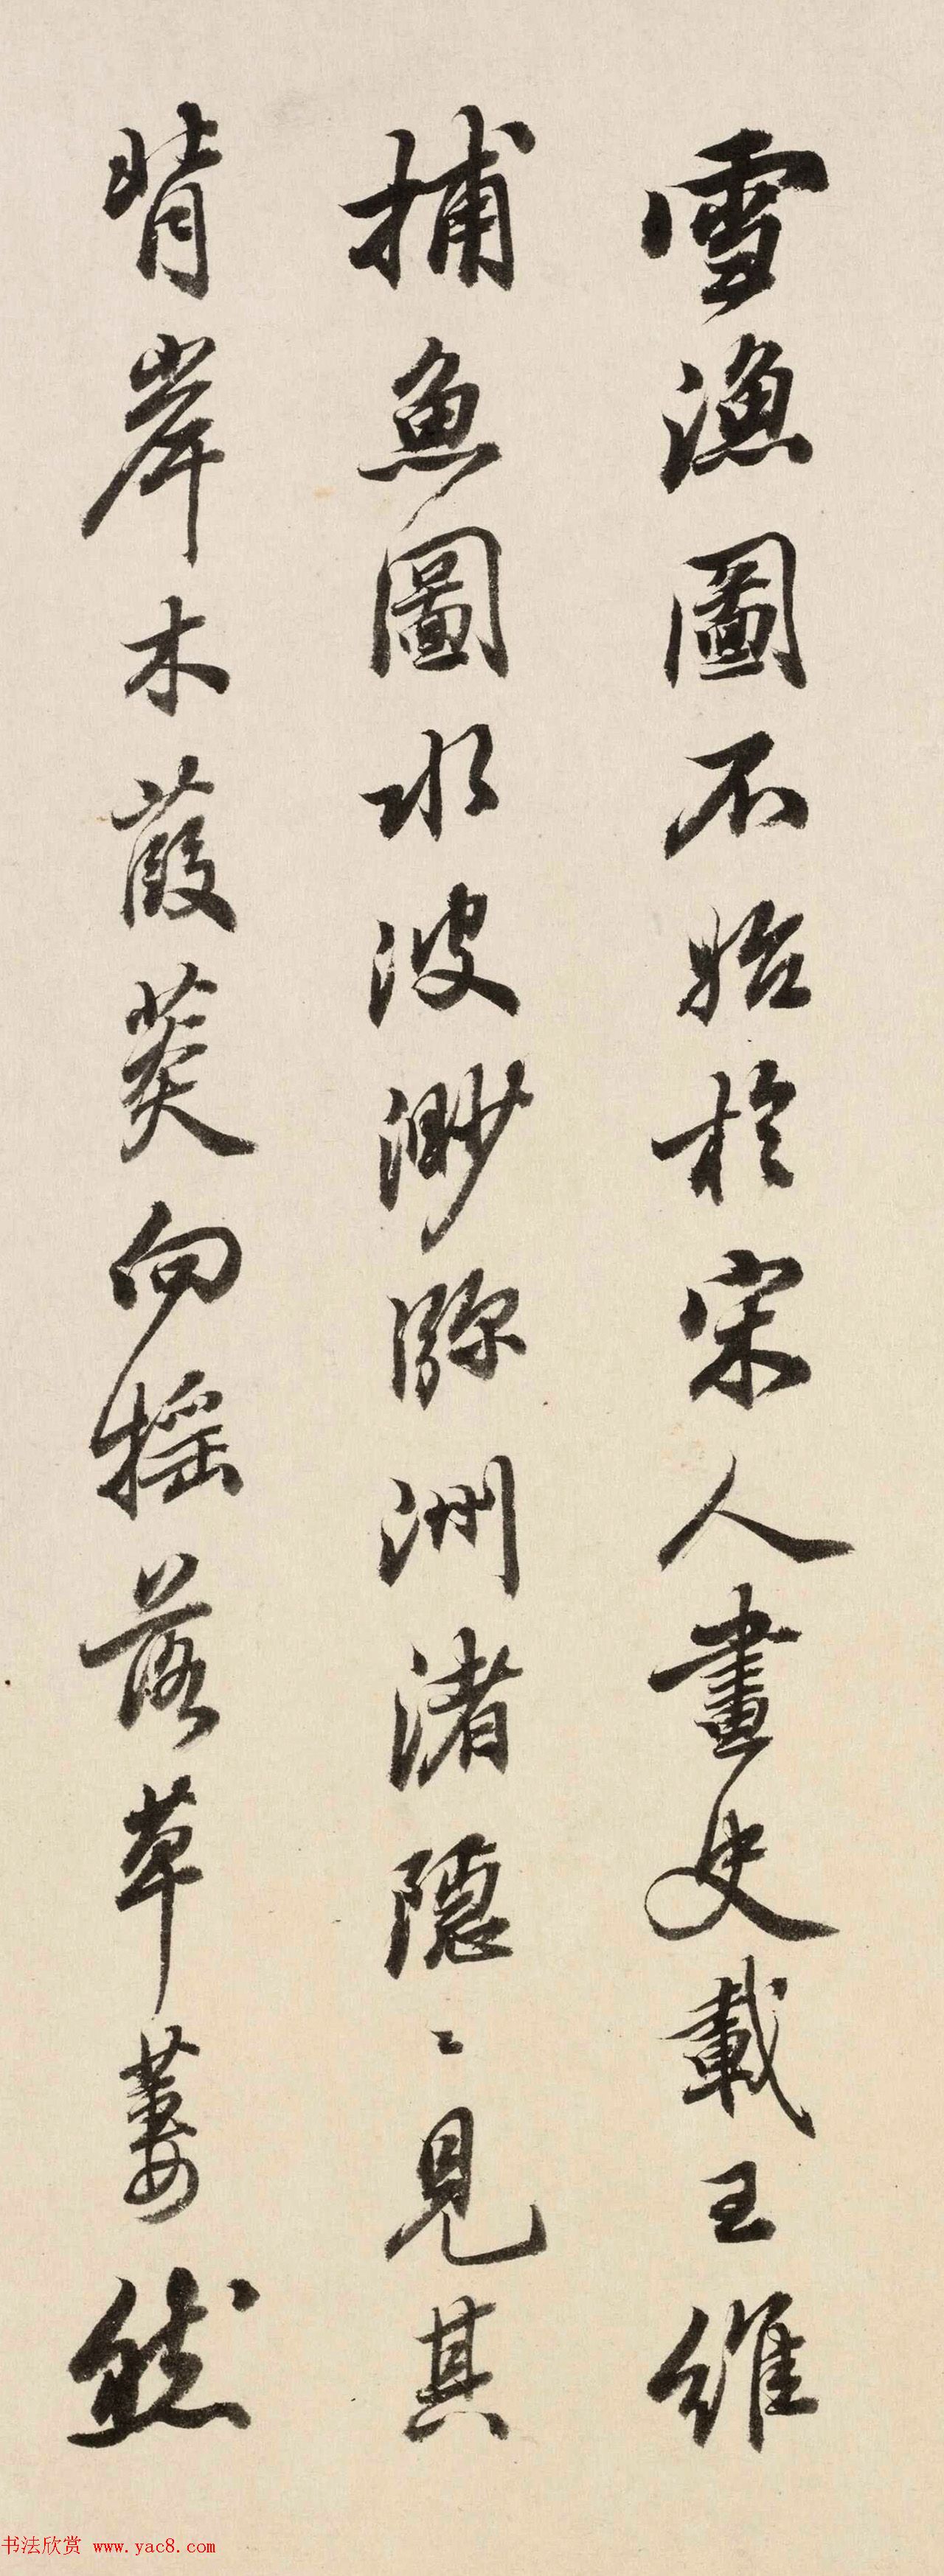 雪漁圖不始於宋人畫史載王維
捕魚圖水波渺瀰洲渚隱〻見其
背岸木葭菼向搖落草萋然
书法欣赏 www.yac8.com